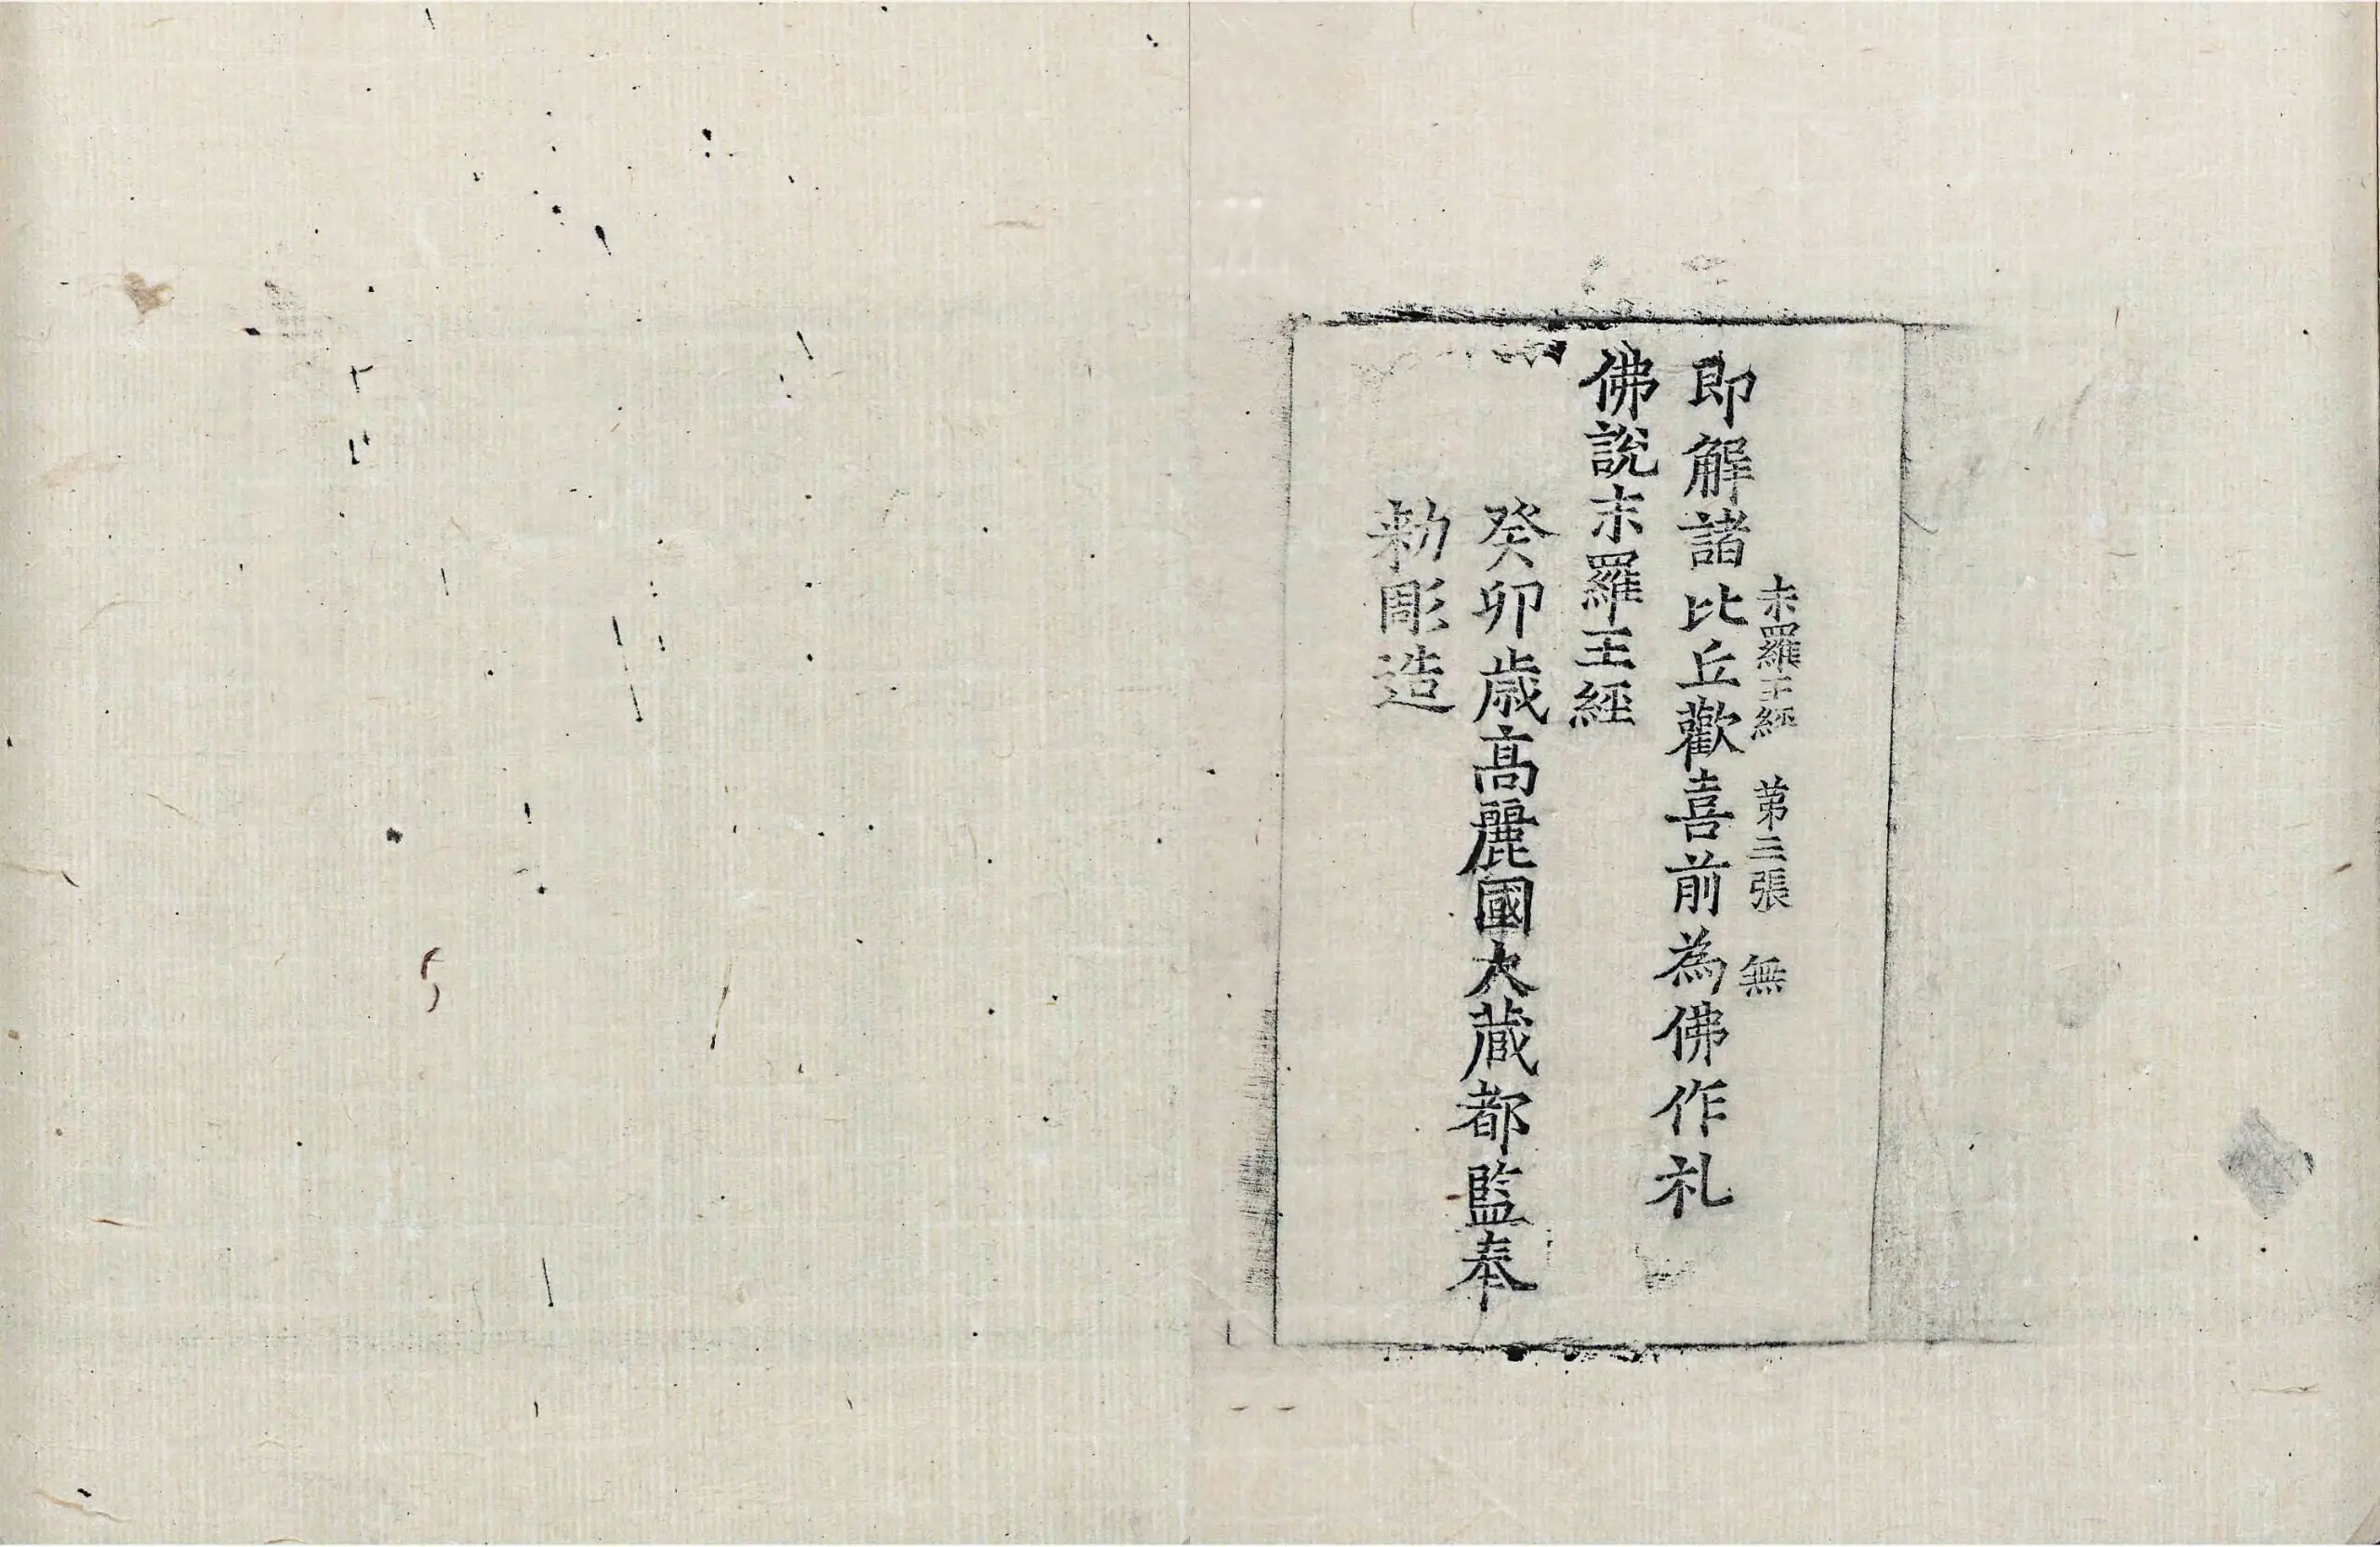 末羅王經 第三張 無
即解諸比丘歡喜前為佛作礼
佛說末羅王經
癸卯歳高麗國大藏都監奉
勑彫造